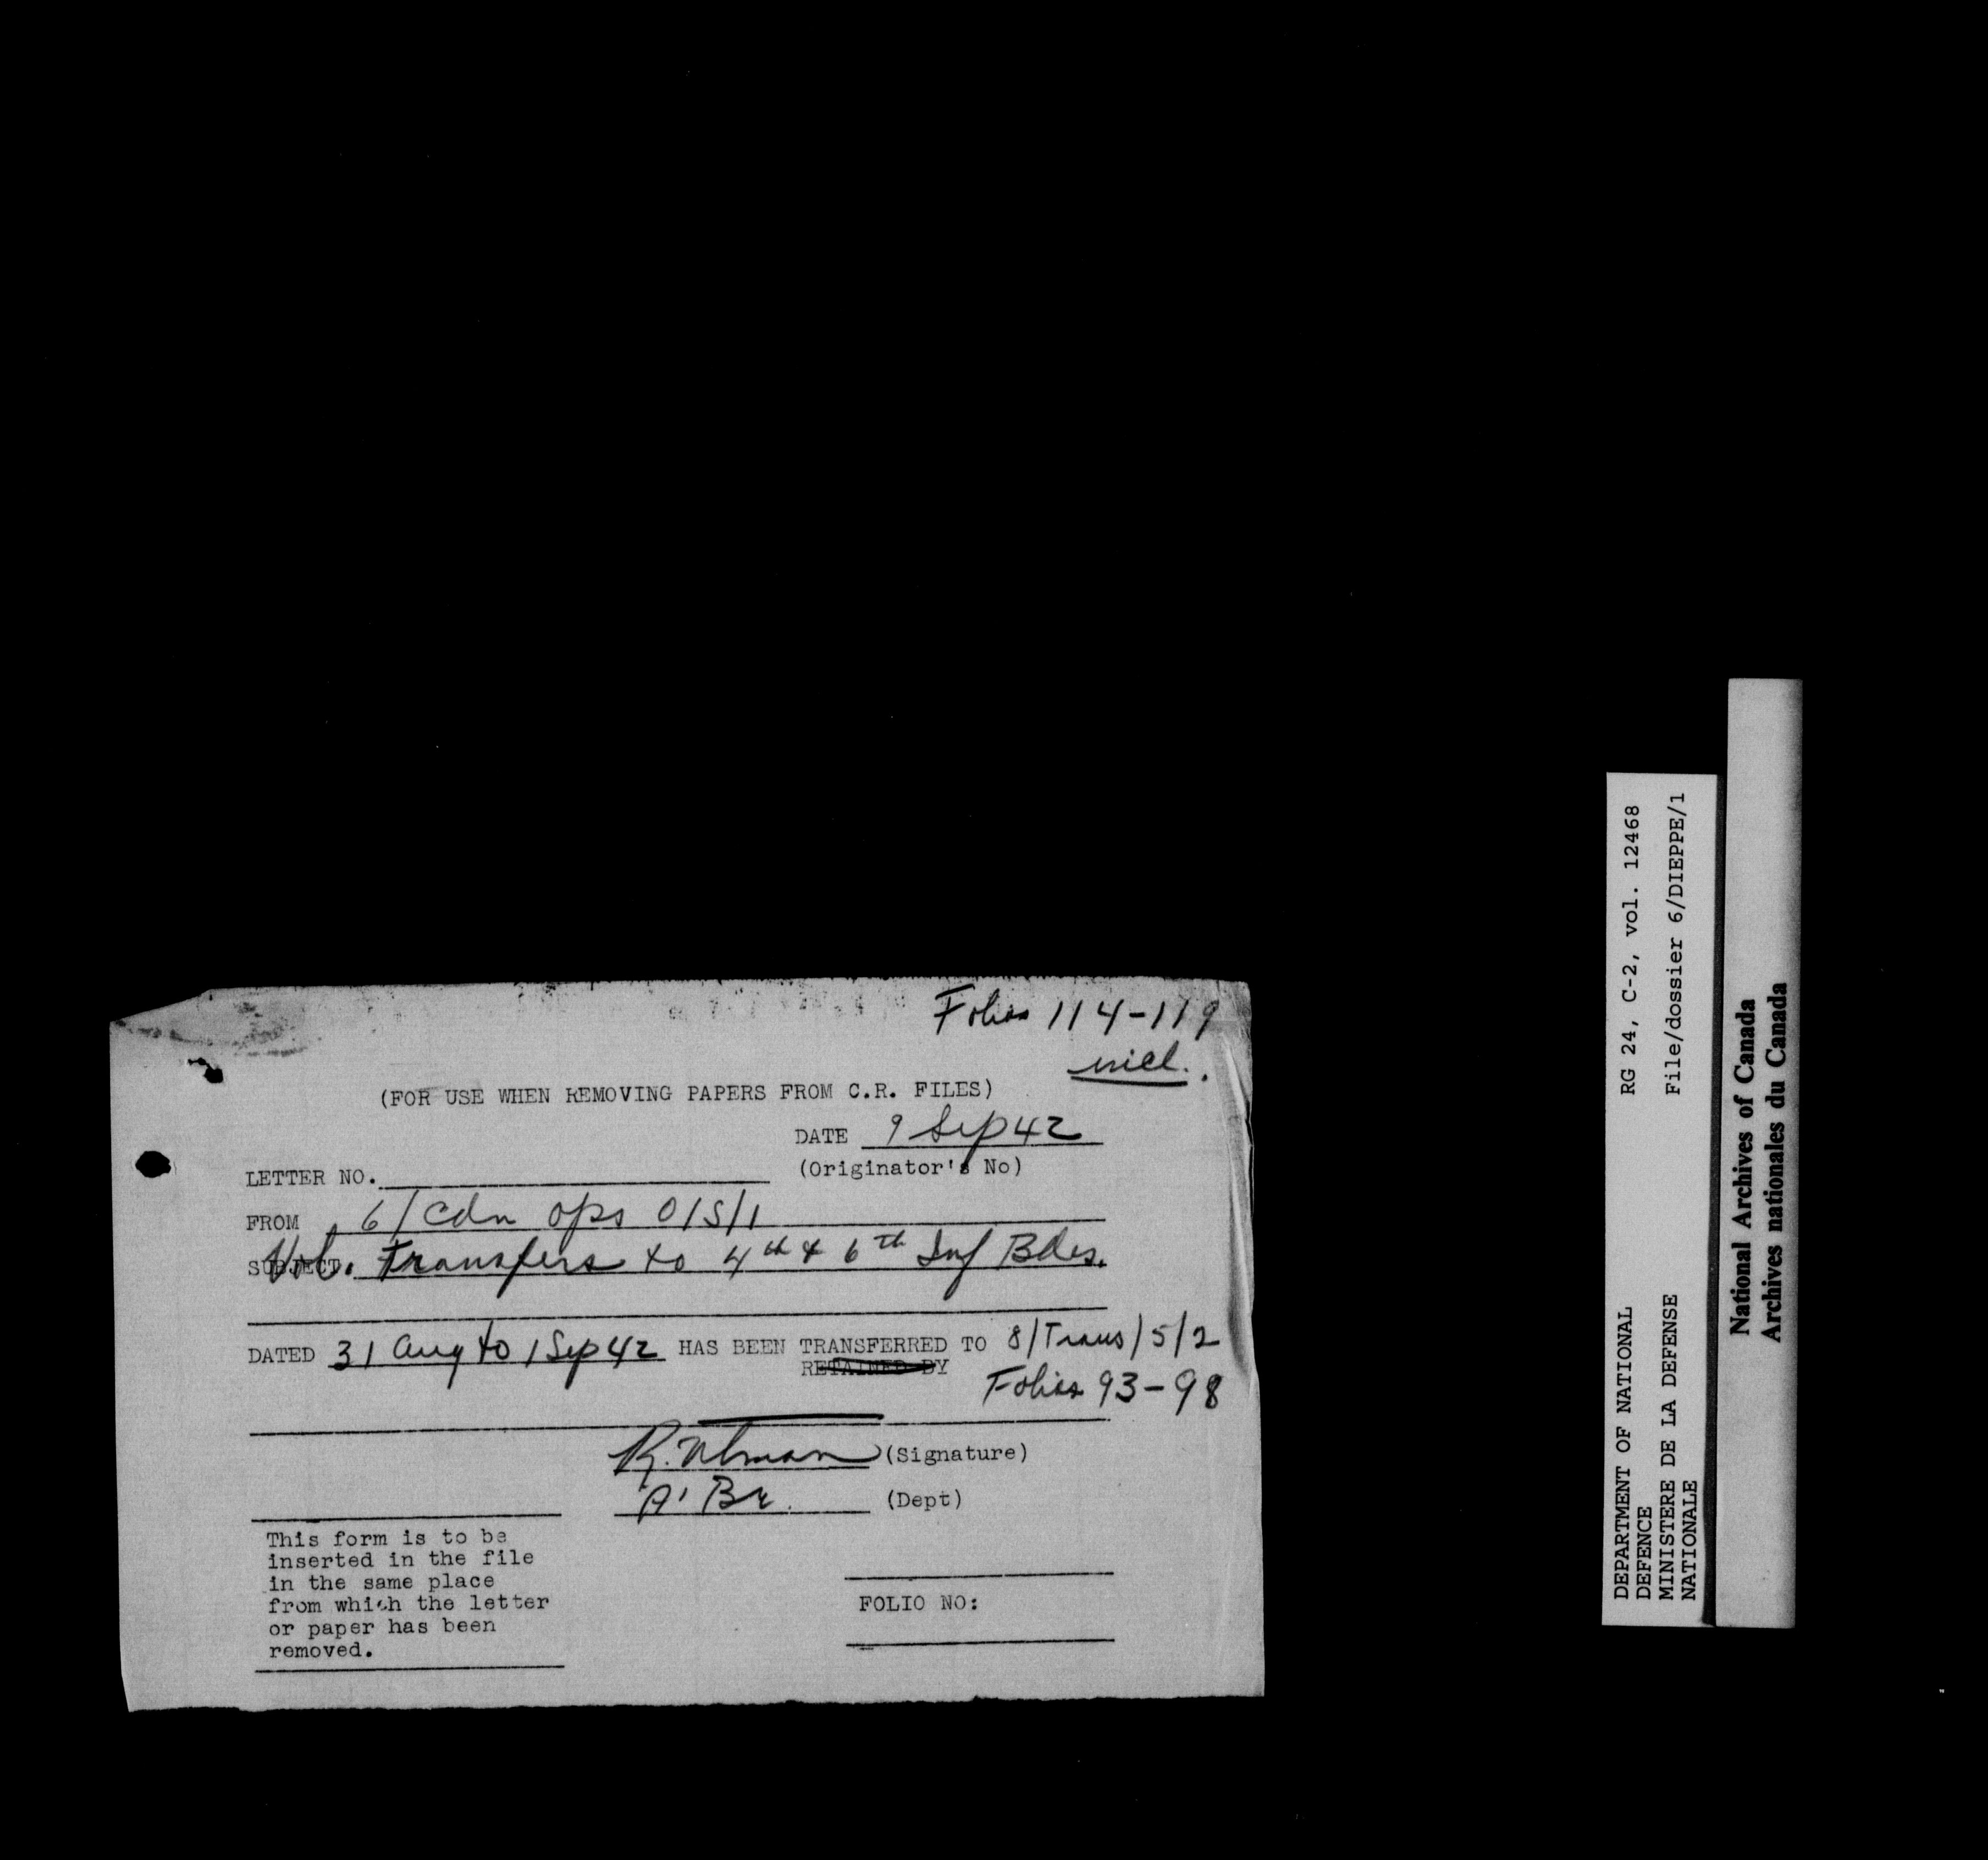 Folios 114-119
incl.
(FOR USE WHEN REMOVING PAPERS FROM C.R. FILES)
DATE 9 Sep 42
LETTER NO. (Originator's No)
FROM 6/Cdn Ops O/S/1
SUBJECT. Transfers to 4th & 6th Inf Bdes.
DATED 31 Aug to 1 Sep 42 HAS BEEN TRANSFERRED TO 8/Trans/5/2
RETAINED BY
Folios 93-98
(Signature)
A' Br. (Dept)
This form is to be
inserted in the file
in the same place
from which the letter
or paper has been
removed.
FOLIO NO:
DEPARTMENT OF NATIONAL
DEFENCE
MINISTERE DE LA DEFENSE
NATIONALE
RG 24, C-2, vol. 12468
File/dossier 6/DIEPPE/1
National Archives of Canada
Archives nationales du Canada